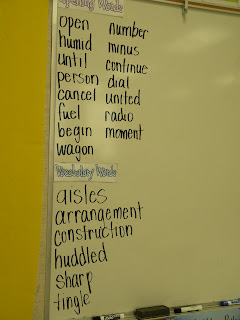 Spelling Words
open number
humid minus
until continue
person dial
cancel united
fuel radio
begin moment
wagon
Vocabulary Words
aisles
arrangement
construction
huddled
sharp
tingle